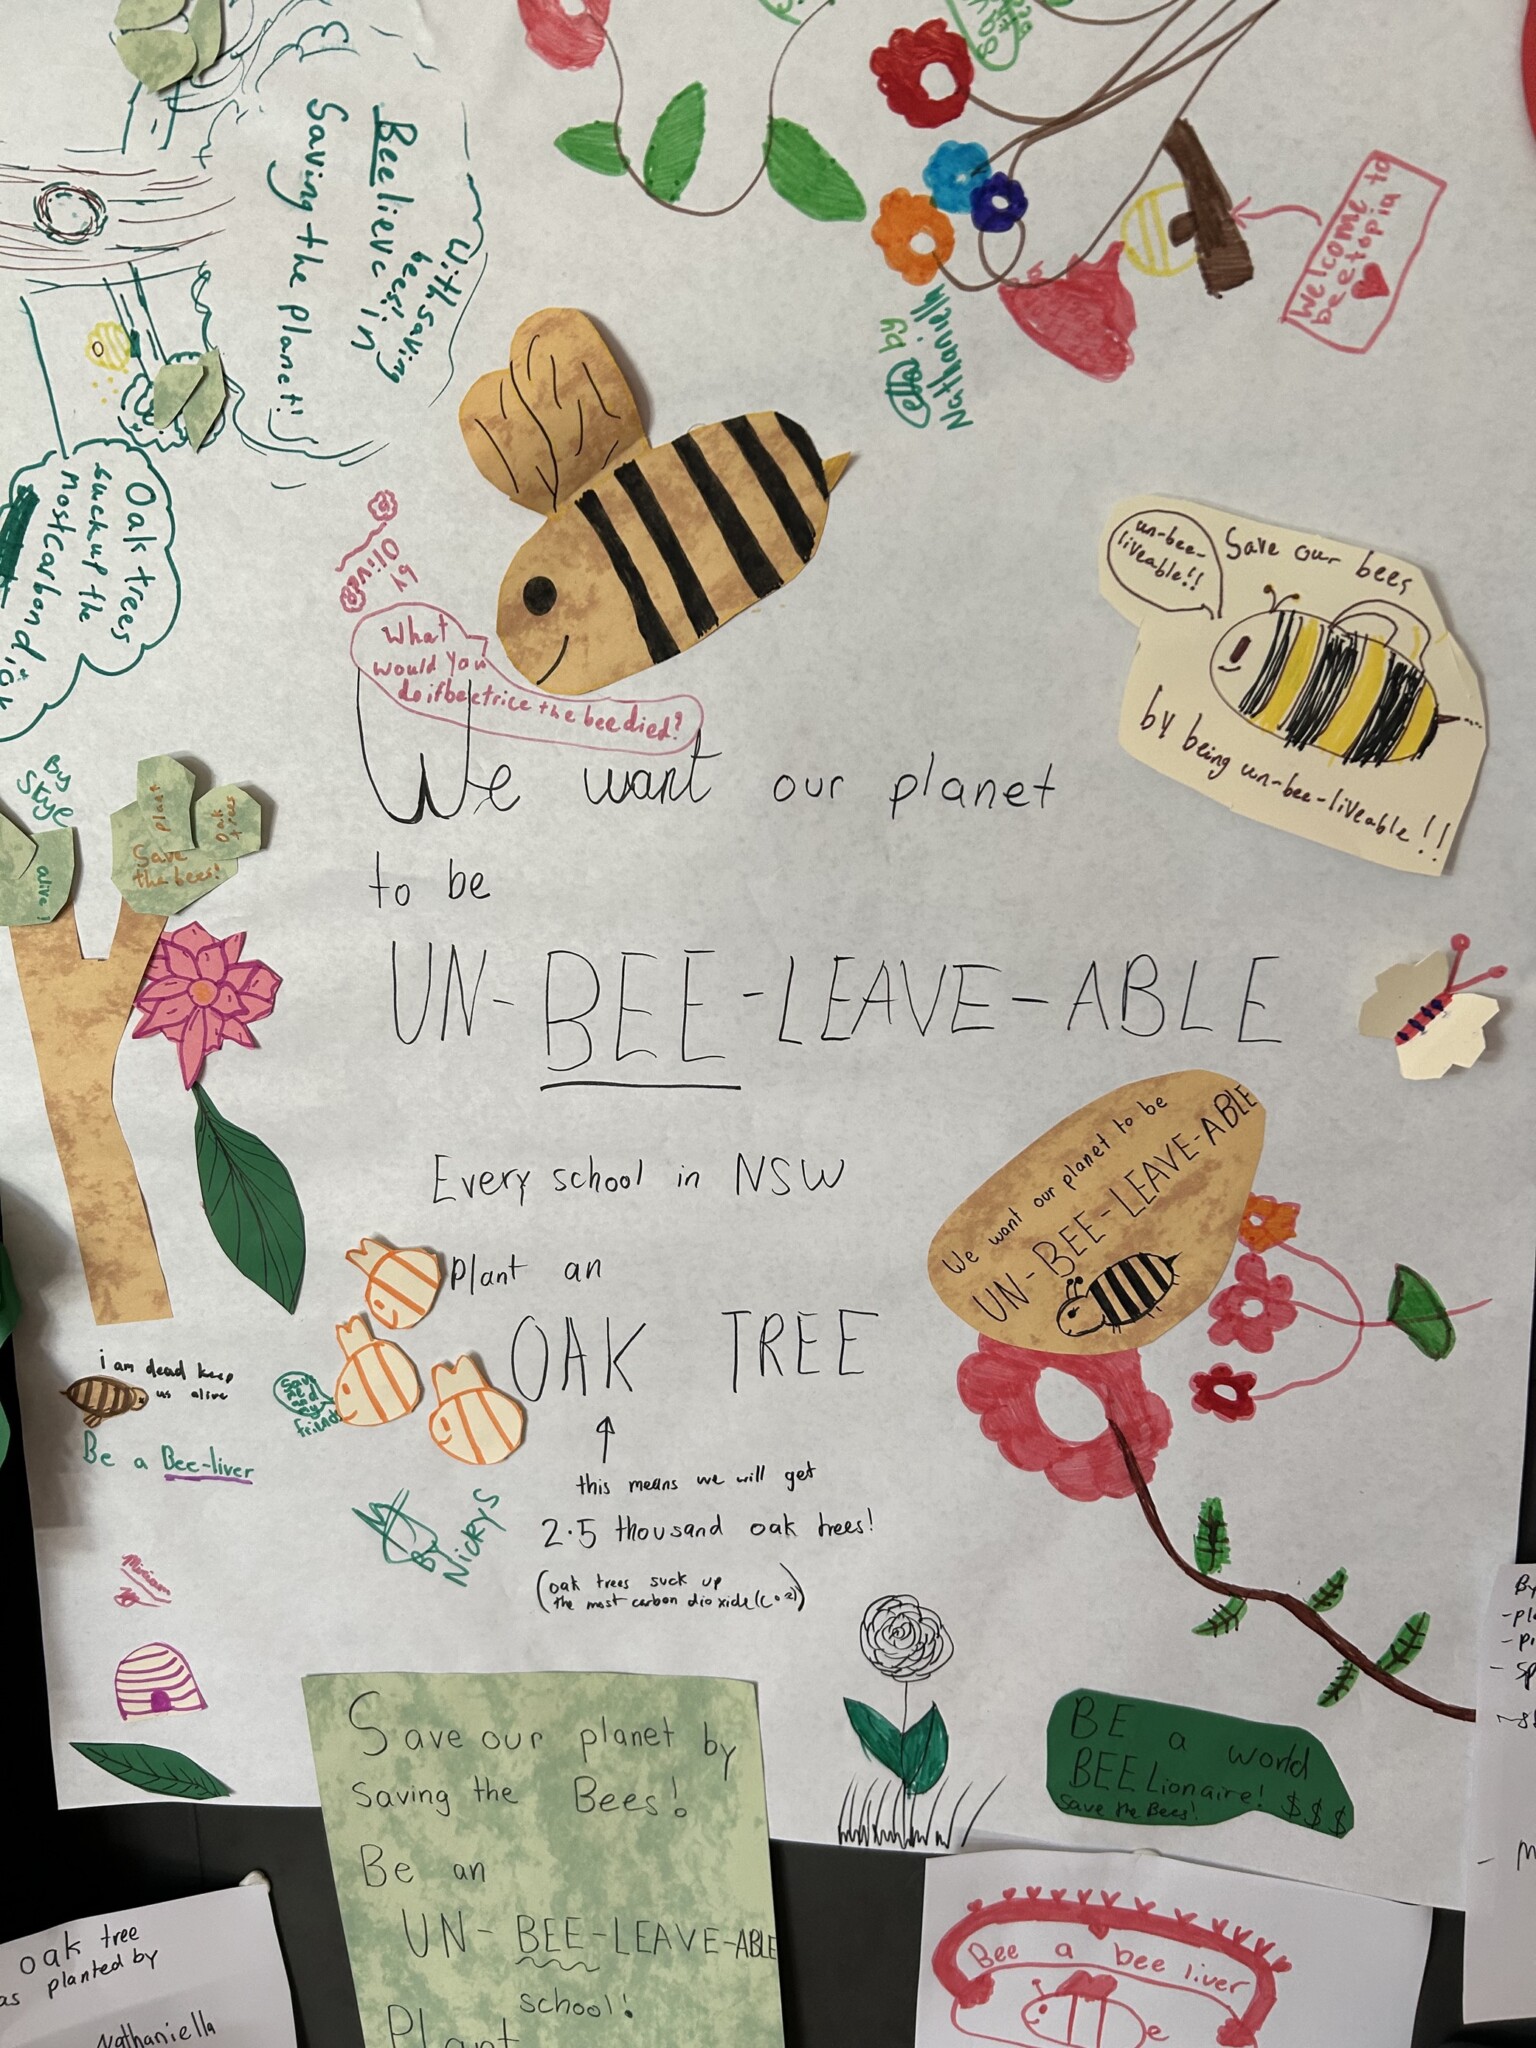 Saving the planet!
BEElieve in
with saving
bees!
ella by
Nathaniella
Welcome to
beetopia
Oak trees
suck up the
most carbon
by
Olive
What
would you
do if beetrice the bee died?
un-bee-
liveable!!
Save our bees
by being un-bee-liveable!!
We want our planet
to be
UN-BEE-LEAVE-ABLE
By
Skye
alive!
plant
Oak
trees
Save
the bees!
Every school in NSW
plant an
OAK TREE
this means we will get
2.5 thousand oak trees!
(oak trees suck up
the most carbon dioxide (co2))
We want our planet to be
UN-BEE-LEAVE-ABLE
i am dead keep
us alive
Save
me and
my
friends
Be a Bee-liver
By
Nickys
Miriam
Save our planet by
saving the Bees!
Be an
UN-BEE-LEAVE-ABLE
school!
Plant
BE a world
BEELionaire! $$$
Save the Bees!
Bee a bee liver
oak tree
as planted by
Nathaniella
By